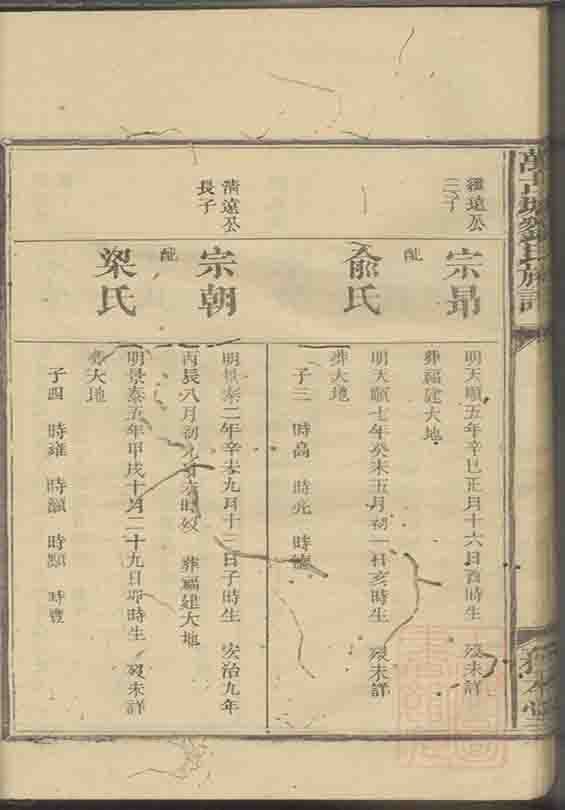 氏族譜
繼遠公
三子
宗昻
配
俞氏
明天順五年辛巳正月十六日酉時生 歿未詳
葬福建大地
明天順七年癸未五月初一日亥時生 歿未詳
葬大地
子三 時高 時光 時
清遠公
長子
宗朝
配
梁氏
明景泰二年辛未九月十三日子時生 宏治九年
丙辰八月初九日 時歿 葬福建大地
明景泰五年甲戌十月二十九日卯時生 歿未詳
葬大地
子四 時雍 時顯 時顥 時豐